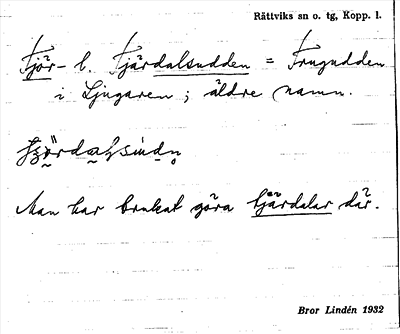 Rättviks sn o. tg, Kopp. l.
Tjör- l. Tjärdalsudden = Frugudden
i Ljugaren; äldre namn.
Man har brukat göra tjärdalar där.
Bror Lindén 1932